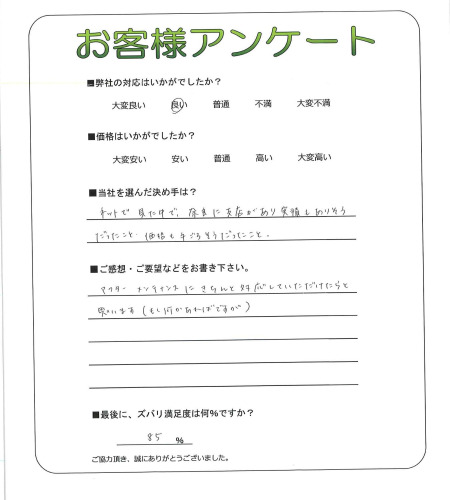 お客様アンケート
■弊社の対応はいかがでしたか?
大変良い 良い 普通 不満 大変不満
■価格はいかがでしたか?
大変安い 安い 普通 高い 大変高い
■当社を選んだ決め手は?
ネットで見た中で、奈良に支店があり実績もありそう
だったこと、価格も手ごろそうだったこと。
■ご感想・ご要望などをお書き下さい。
アフターメンテナンスにきちんと対応していただけたらと
思います(もし何かあればですが)
■最後に、ズバリ満足度は何%ですか?
85 %
ご協力頂き、誠にありがとうございました。